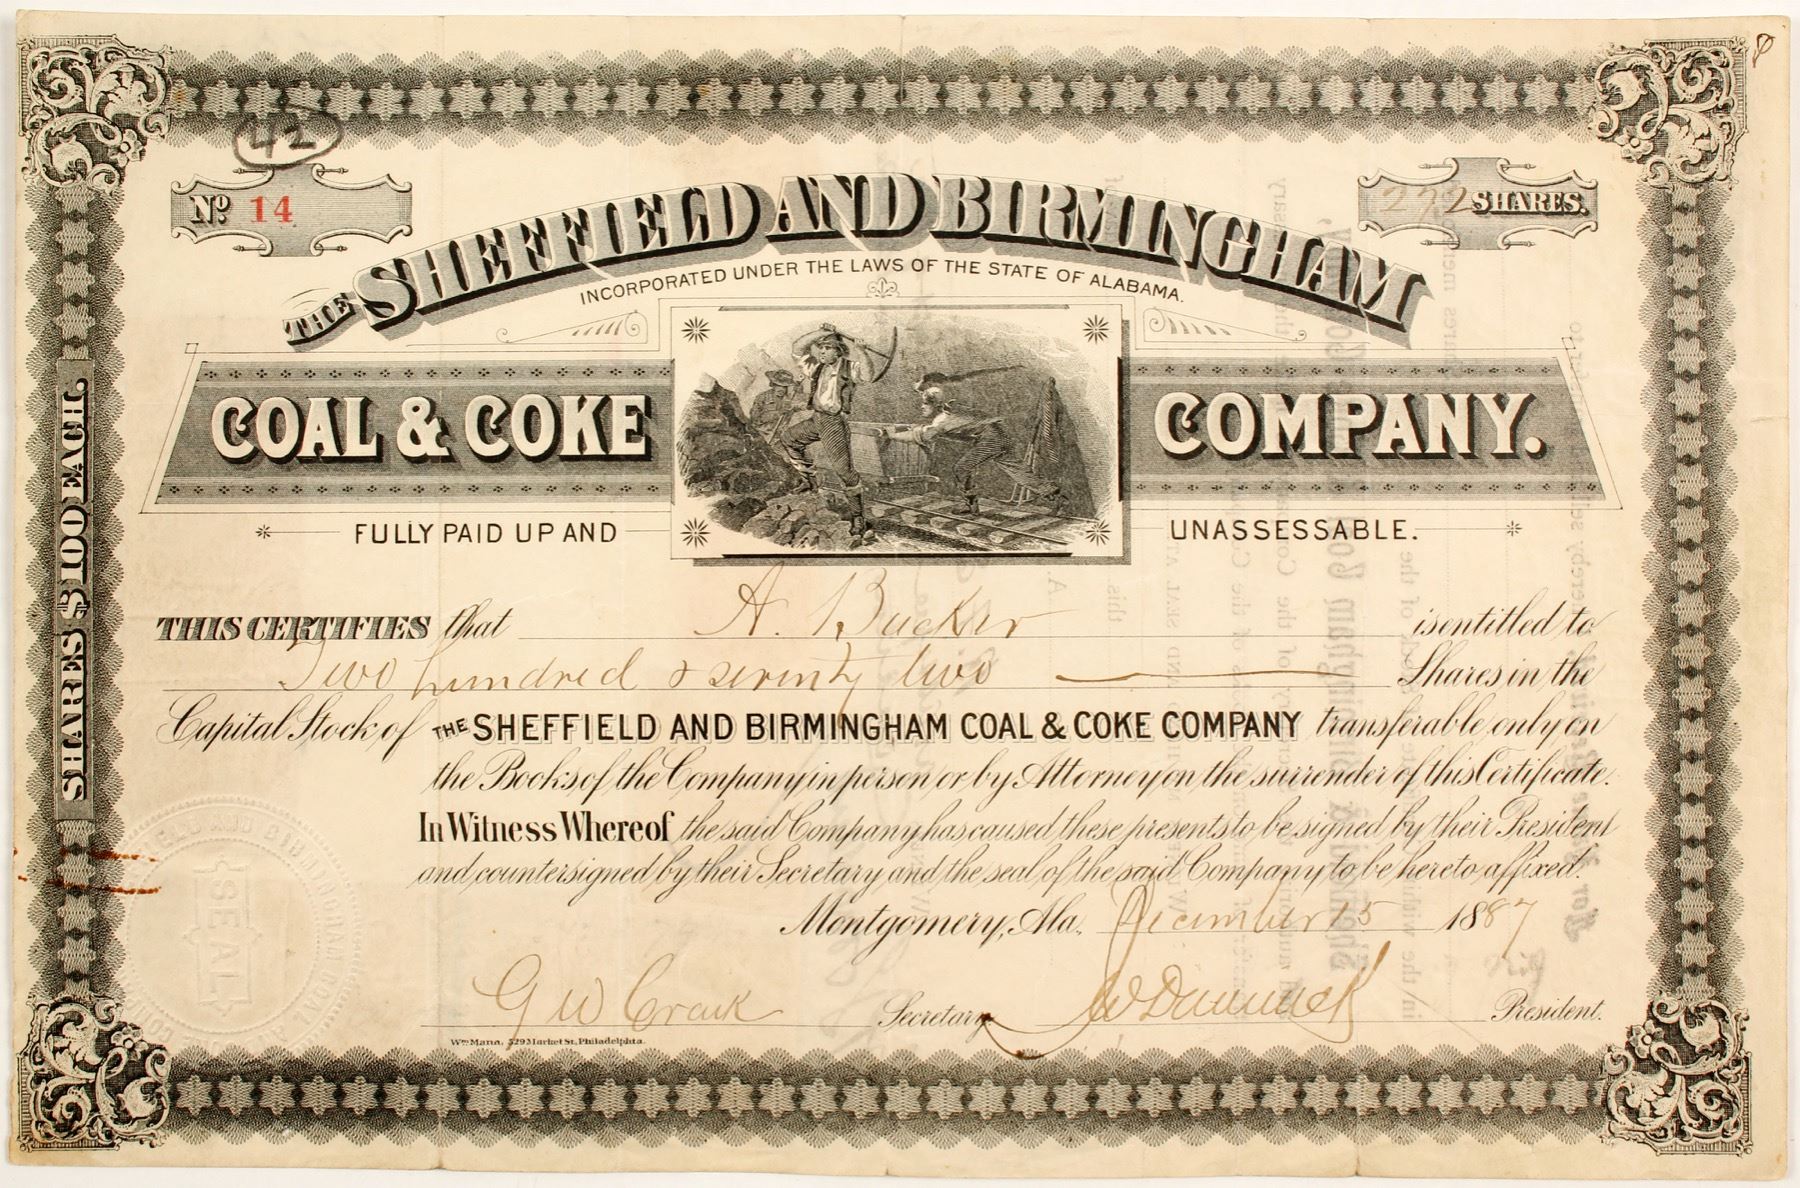 42
No 14
272 SHARES.
THE SHEFFIELD AND BIRMINGHAM
INCORPORATED UNDER THE LAWS OF THE STATE OF ALABAMA.
COAL & COKE COMPANY.
FULLY PAID UP AND UNASSESSABLE.
SHARES $100 EACH.
THIS CERTIFIES that A. Bucker is entitled to
Two hundred & seventy two Shares in the
Capital Stock of THE SHEFFIELD AND BIRMINGHAM COAL & COKE COMPANY transferable only on
the Books of the Company in person or by Attorney on the surrender of this Certificate.
In Witness Whereof the said Company has caused these presents to be signed by their President
and countersigned by their Secretary and the seal of the said Company to be hereto affixed.
Montgomery, Ala. December 15 1887
G W Craik Secretary President.
SEAL
Wm Mann, 529 Market St, Philadelphia.